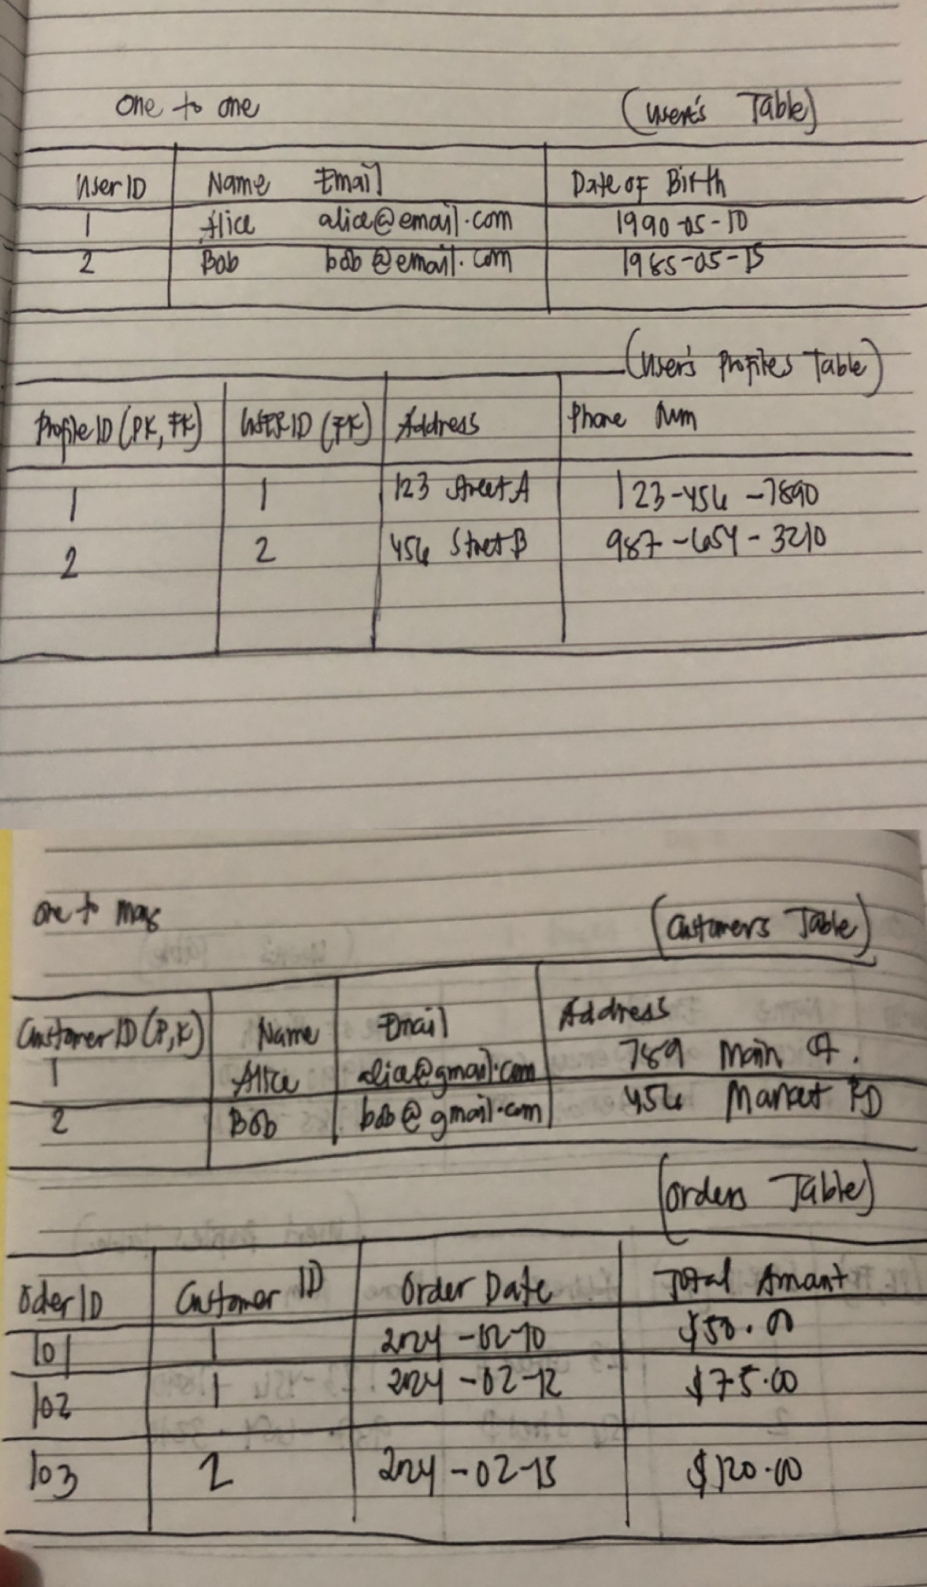 one to one (User's Table)
User ID Name Email Date of Birth
1 Alice alice@email.com 1990-05-10
2 Bob bob@email.com 1985-05-15
(User's Profiles Table)
Profile ID (PK, FK) User ID (FK) Address Phone Num
1 1 123 Street A 123-456-7890
2 2 456 Street B 987-654-3210
one to many (Customers Table)
Customer ID (P,K) Name Email Address
1 Alice alice@gmail.com 789 Main St.
2 Bob bob@gmail.com 456 Market RD
(Orders Table)
Oder ID Customer ID Order Date Total Amant
101 1 2024-02-10 $50.00
102 1 2024-02-12 $75.00
103 2 2024-02-15 $120.00